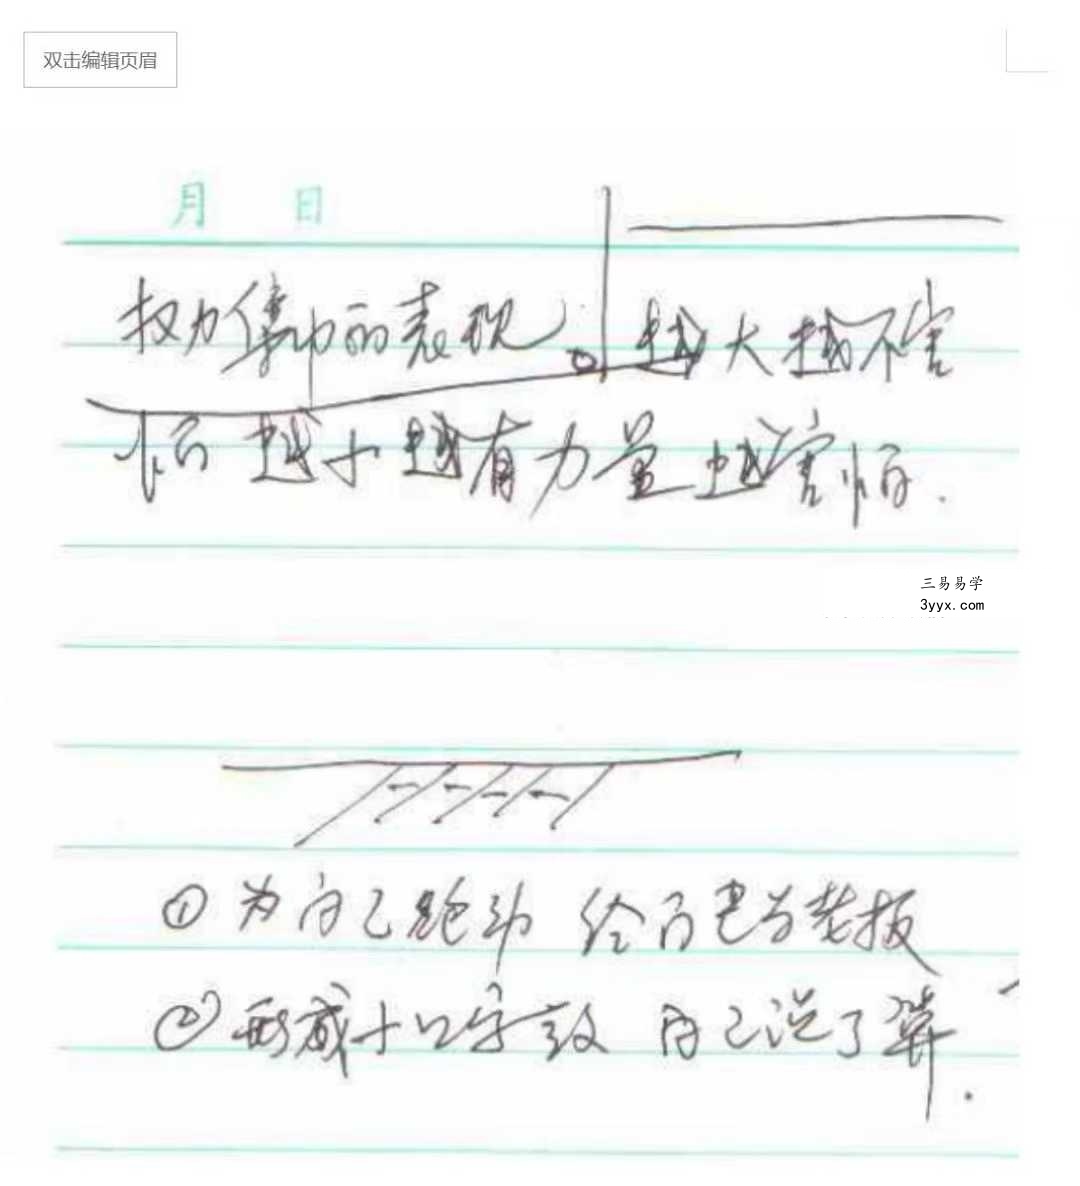 双击编辑页眉
月 日
权力集中的表现。越大越不害
怕 越小越有力量越害怕.
三易易学
3yyx.com
①为自己跑动 给自己当老板
②形成十口字致 自己说了算.